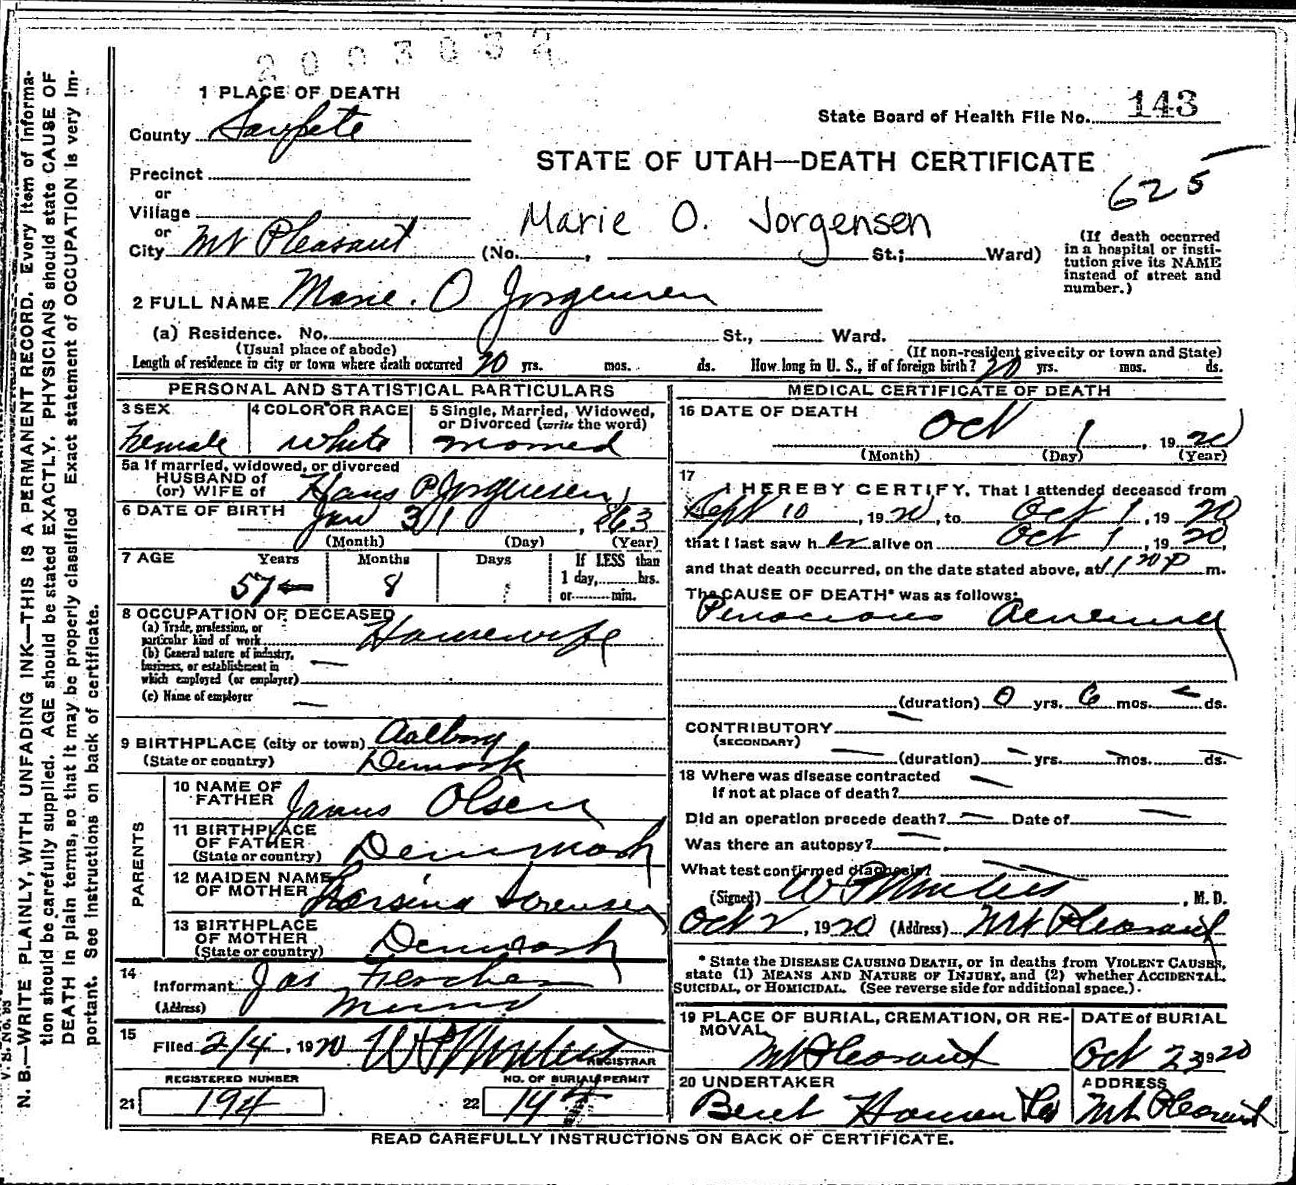 2003032
1 PLACE OF DEATH
County Sanpete
State Board of Health File No. 143
STATE OF UTAH—DEATH CERTIFICATE
625
Precinct
or
Village
or
City Mt Pleasant
Marie O. Jorgensen
(No. , St.; Ward)
(If death occurred in a hospital or insti-
tution give its NAME
instead of street and
number.)
2 FULL NAME Marie. O Jorgensen
(a) Residence. No. St., Ward.
(Usual place of abode)
(If non-resident give city or town and State)
Length of residence in city or town where death occurred 20 yrs. mos. ds. How long in U. S., if of foreign birth? 20 yrs. mos. ds.
PERSONAL AND STATISTICAL PARTICULARS
3 SEX 4 COLOR OR RACE 5 Single, Married, Widowed,
or Divorced (write the word)
Female White
5a If married, widowed, or divorced
HUSBAND of
(or) WIFE of Hans P Jorgensen
6 DATE OF BIRTH Jan 31, 1863
(Month) (Day) (Year)
7 AGE Years Months Days If LESS than
1 day, hrs.
or min.
57 8
8 OCCUPATION OF DECEASED
(a) Trade, profession, or
particular kind of work Housewife
(b) General nature of industry,
business, or establishment in
which employed (or employer)
(c) Name of employer
9 BIRTHPLACE (city or town) Aalborg
(State or country) Denmark
PARENTS
10 NAME OF
FATHER Olsen
11 BIRTHPLACE
OF FATHER
(State or country) Denmark
12 MAIDEN NAME
OF MOTHER Sorensen
13 BIRTHPLACE
OF MOTHER
(State or country) Denmark
14
Informant Jas
(Address)
15
Filed 2/4, 1920
REGISTRAR
REGISTERED NUMBER NO. OF BURIAL PERMIT
21 194 22 144
MEDICAL CERTIFICATE OF DEATH
16 DATE OF DEATH
Oct 1, 1920
(Month) (Day) (Year)
17
I HEREBY CERTIFY, That I attended deceased from
Sept 10, 1920, to Oct 1, 1920
that I last saw her alive on Oct 1, 1920,
and that death occurred, on the date stated above, at 1120 P m.
The CAUSE OF DEATH* was as follows:
(duration) 0 yrs. 6 mos. ds.
CONTRIBUTORY
(SECONDARY)
(duration) yrs. mos. ds.
18 Where was disease contracted
if not at place of death?
Did an operation precede death? Date of
Was there an autopsy?
What test confirmed diagnosis?
(Signed) , M. D.
Oct 2, 1920 (Address) Mt Pleasant
* State the DISEASE CAUSING DEATH, or in deaths from VIOLENT CAUSES,
state (1) MEANS AND NATURE OF INJURY, and (2) whether ACCIDENTAL,
SUICIDAL, or HOMICIDAL. (See reverse side for additional space.)
19 PLACE OF BURIAL, CREMATION, OR RE-
MOVAL
DATE of BURIAL
Mt Pleasant Oct 1920
20 UNDERTAKER ADDRESS
Hansen Co Mt Pleasant
READ CAREFULLY INSTRUCTIONS ON BACK OF CERTIFICATE.
N. B.—WRITE PLAINLY, WITH UNFADING INK—THIS IS A PERMANENT RECORD. Every item of informa-
tion should be carefully supplied. AGE should be stated EXACTLY. PHYSICIANS should state CAUSE OF
DEATH in plain terms, so that it may be properly classified. Exact statement of OCCUPATION is very im-
portant. See instructions on back of certificate.